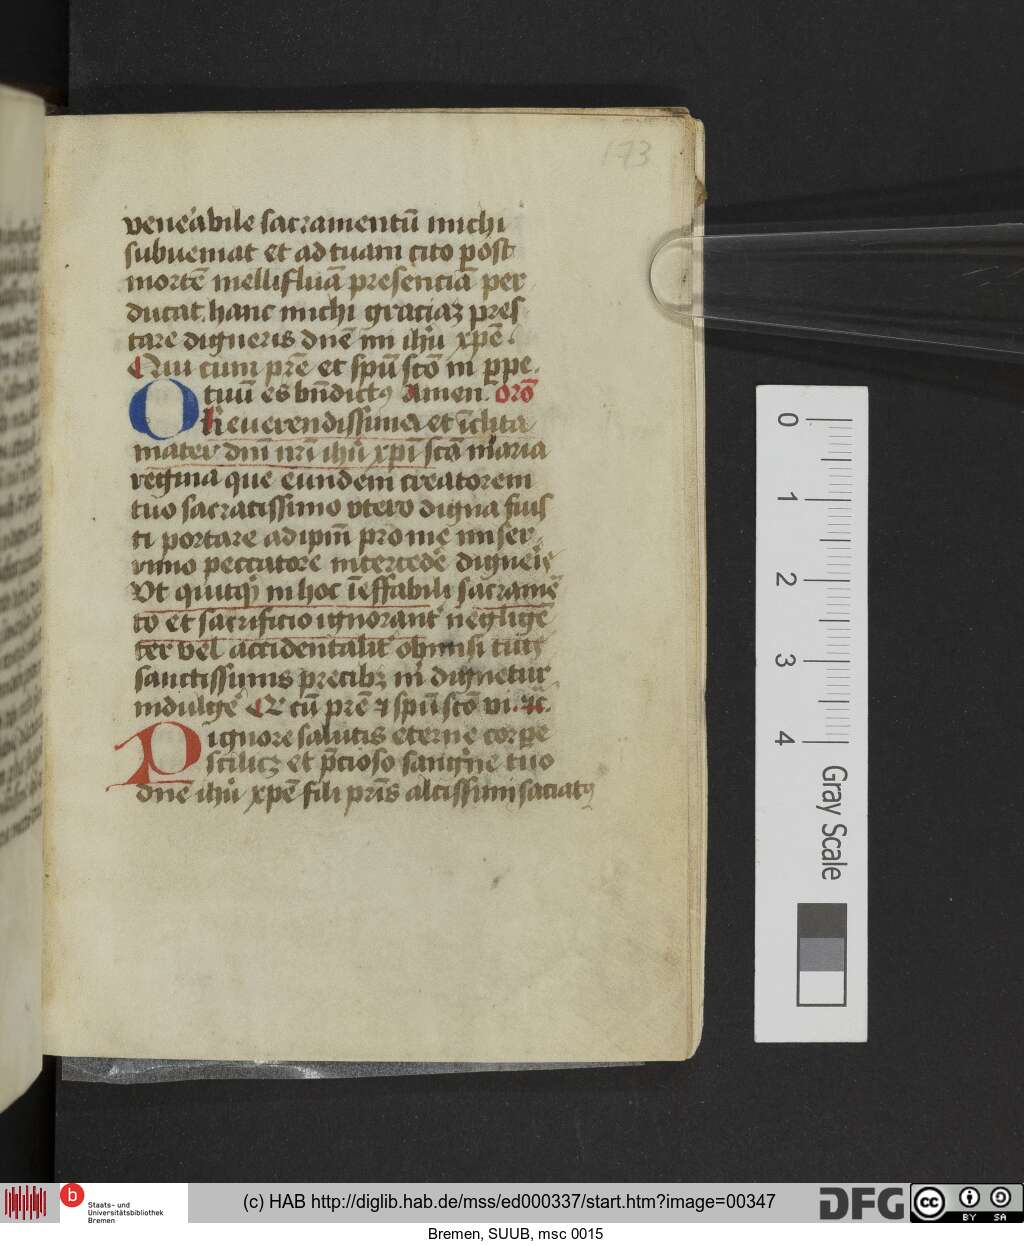 173
veneabile sacramentū michi
subueniat et ad tuam cito post
mortē mellifluā presenciā per
ducat. hanc michi graciaz pres
tare digneris dnē mi ihū xpē.
Qui cum prē et spū scō in ppe.
tuū es bn̄dictꝰ Amen. Orō
O Reuerendissima et īclita
mater dn̄i nrī ihū xpī scā maria
regina que eundem creatorem
tuo sacratissimo vtero digna fuis
ti portare ad ipm̄ pro me miser
rimo peccatore intercede digneris
Vt quitqz in hoc ieffabili sacramē
to et sacrificio ignorant negligē
ter vel accidentalit obmisi tuis
sanctissimis precibz m dignetur
indulge Q cū prē ⁊ spū scō vi. ⁊c.
Pignore salutis eterne corpe
scilicz et pcioso sangne tuo
dnē ihū xpē fili pris altissimi saciatꝰ
0 1 2 3 4 Gray Scale
b Staats- und
Universitätsbibliothek
Bremen
(c) HAB http://diglib.hab.de/mss/ed000337/start.htm?image=00347
DFG
cc BY SA
Bremen, SUUB, msc 0015